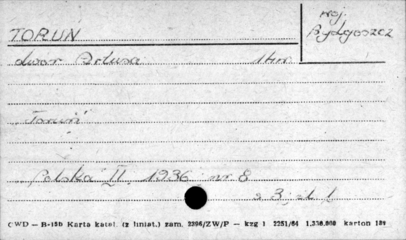 TORUŃ
woj.
Bydgoszcz
dwór Artusa
Toruń
Polska II, 1936 nr 8
s. 3, il. 1
CWD — B-15b Karta katal. (z liniat.) zam. 2396/ZW/P — kzg 1 2251/64 1,338,000 karton